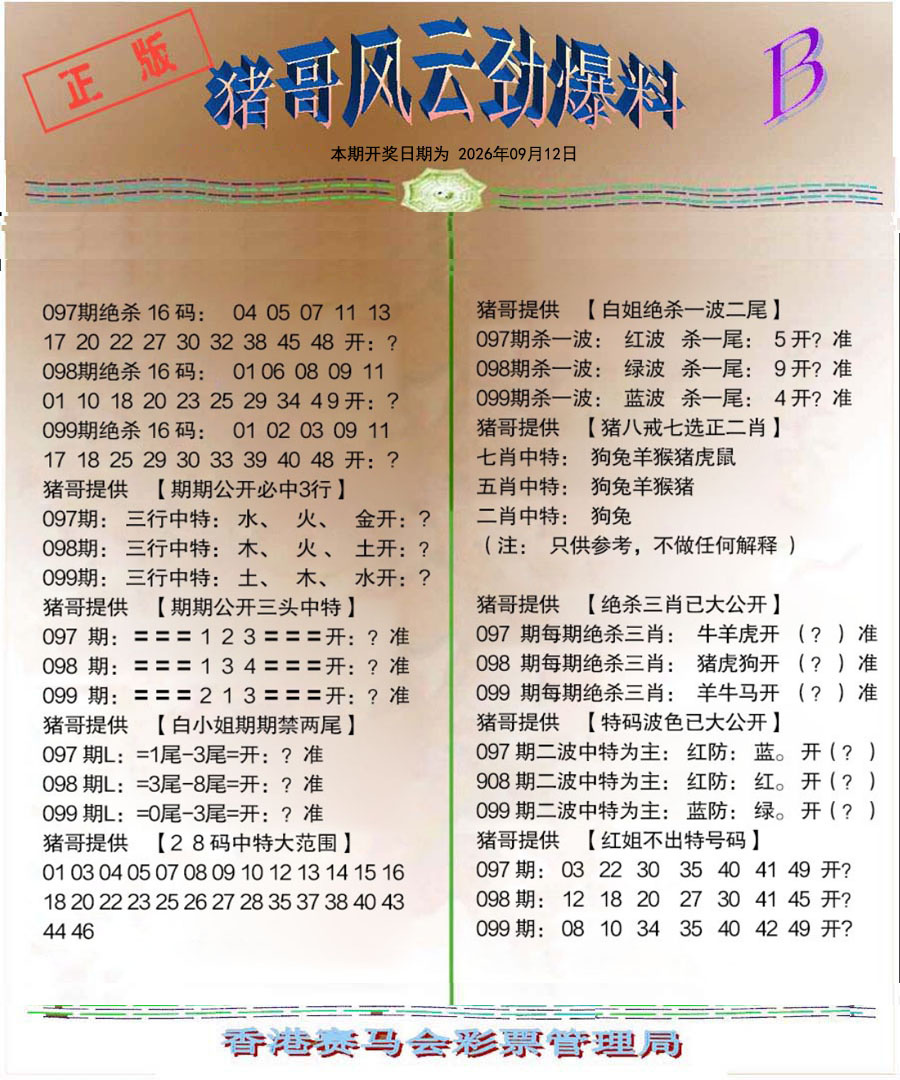 正版
猪哥风云劲爆料
B
本期开奖日期为 2026年09月12日
097期绝杀 16 码： 04 05 07 11 13
17 20 22 27 30 32 38 45 48 开：?
098期绝杀 16 码： 01 06 08 09 11
01 10 18 20 23 25 29 34 4 9 开：?
099期绝杀 16 码： 01 02 03 09 11
17 18 25 29 30 33 39 40 48 开：?
猪哥提供 【期期公开必中3行】
097期： 三行中特： 水、 火、 金开：?
098期： 三行中特： 木、 火 、 土开：?
099期： 三行中特： 土、 木、 水开：?
猪哥提供 【期期公开三头中特】
097 期：〓〓〓1 2 3〓〓〓开：? 准
098 期：〓〓〓1 3 4〓〓〓开：? 准
099 期：〓〓〓2 1 3〓〓〓开：? 准
猪哥提供 【白小姐期期禁两尾】
097 期L：=1尾-3尾=开：? 准
098 期L：=3尾-8尾=开：? 准
099 期L：=0尾-3尾=开：? 准
猪哥提供 【2 8 码中特大范围】
01 03 04 05 07 08 09 10 12 13 14 15 16
18 20 22 23 25 26 27 28 35 37 38 40 43
44 46
猪哥提供 【白姐绝杀一波二尾】
097期杀一波： 红波 杀一尾： 5 开? 准
098期杀一波： 绿波 杀一尾： 9 开? 准
099期杀一波： 蓝波 杀一尾： 4 开? 准
猪哥提供 【猪八戒七选正二肖】
七肖中特： 狗兔羊猴猪虎鼠
五肖中特： 狗兔羊猴猪
二肖中特： 狗兔
（注： 只供参考，不做任何解释 ）
猪哥提供 【绝杀三肖已大公开】
097 期每期绝杀三肖： 牛羊虎开 （? ）准
098 期每期绝杀三肖： 猪虎狗开 （? ）准
099 期每期绝杀三肖： 羊牛马开 （? ）准
猪哥提供 【特码波色已大公开】
097 期二波中特为主： 红防： 蓝。 开（? ）
908 期二波中特为主： 红防： 红。 开（? ）
099 期二波中特为主： 蓝防： 绿。 开（? ）
猪哥提供 【红姐不出特号码】
097 期： 03 22 30 35 40 41 49 开?
098 期： 12 18 20 27 30 41 45 开?
099 期： 08 10 34 35 40 42 49 开?
香港赛马会彩票管理局